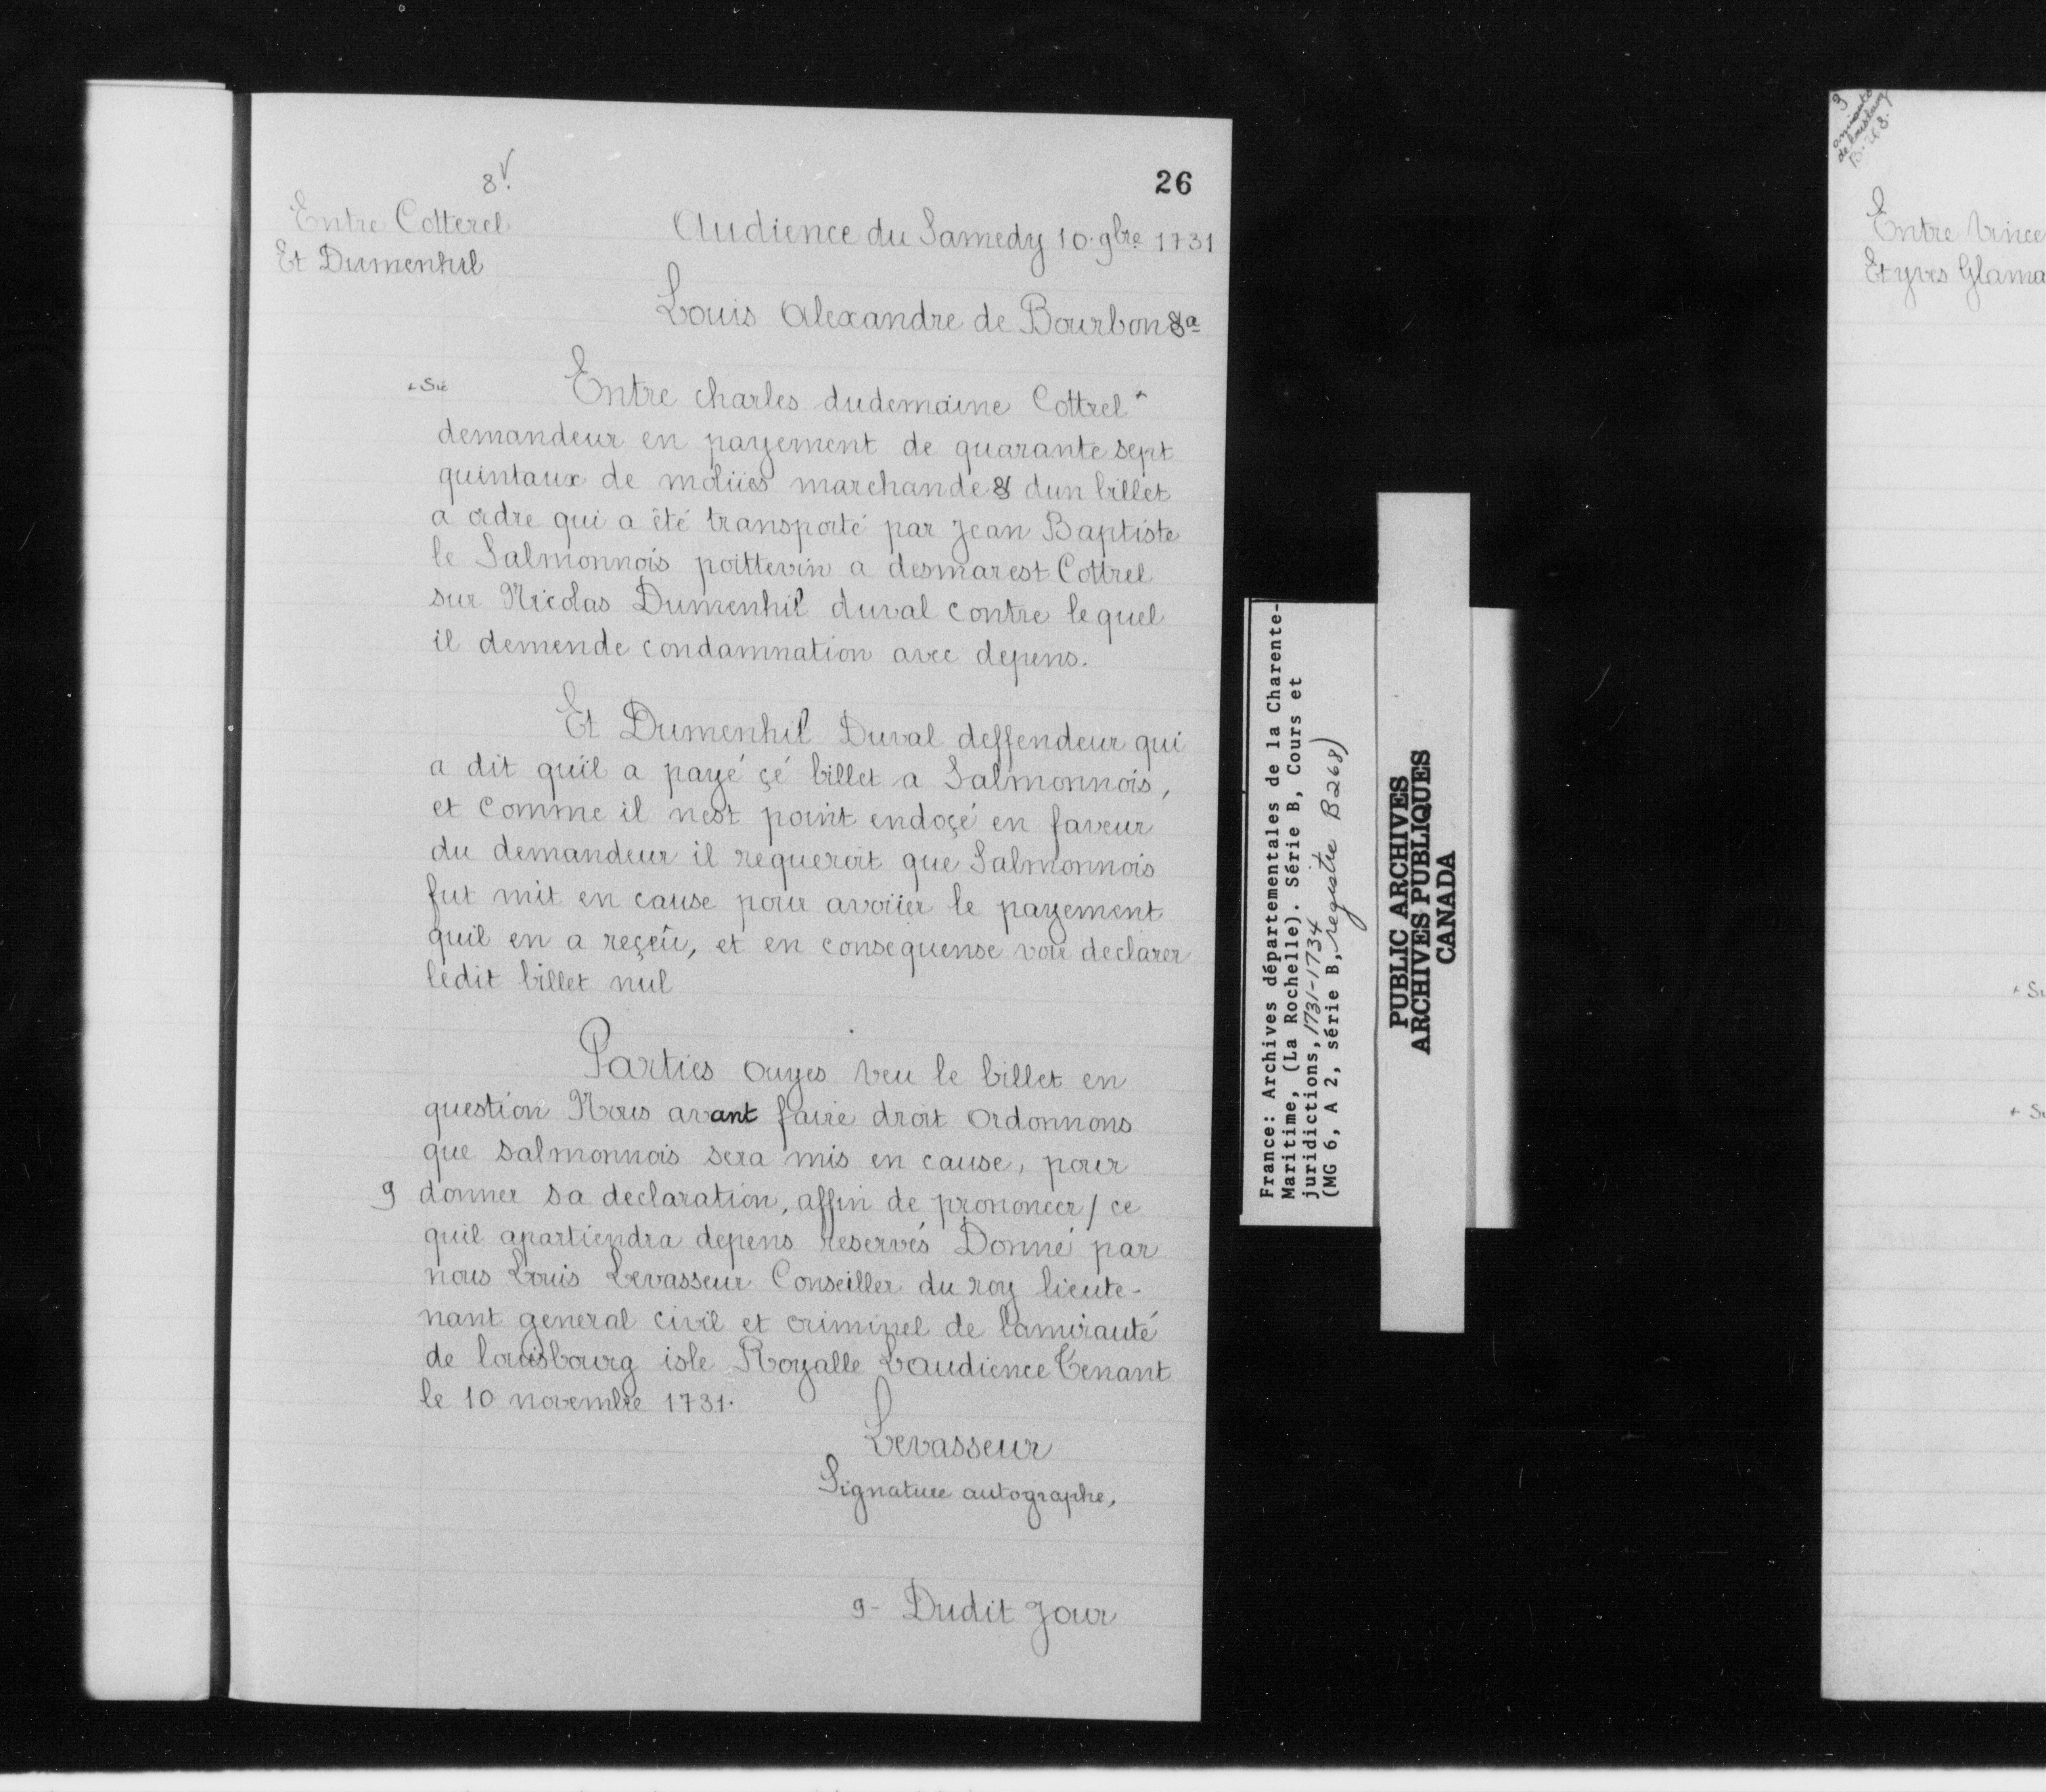 8v.
26
Entre Cotterel
Et Dumenhil
Audience du Samedy 10. 9bre 1731
Louis Alexandre de Bourbon &a
+ Sic
Entre charles dudemaine Cottrel +
demandeur en payement de quarante sept
quintaux de moliies marchande & dun billet
a ordre qui a êté transporté par Jean Baptiste
le Salmonnois poittevin a desmarest Cottrel
sur Nicolas Dumenhil duval contre lequel
il demende condamnation avec depens.
Et Dumenhil Duval deffendeur qui
a dit quil a payé çé billet a Salmonnois,
et comme il nest point endoçé en faveur
du demandeur il requeroit que Salmonnois
fut mit en cause pour avoiier le payement
quil en a reçeü, et en consequense voir declarer
ledit billet nul
Parties ouyes veu le billet en
question Nous avant faire droit ordonnons
que salmonnois sera mis en cause, pour
9 donner sa declaration, affin de prononcer / ce
quil apartiendra depens reservés Donné par
nous Louis Levasseur Conseiller du roy lieute-
nant general civil et criminel de lamirauté
de louisbourg isle Royalle Laudience Tenant
le 10 novembre 1731.
Levasseur
Signature autographe.
9- Dudit Jour
France: Archives départementales de la Charente-
Maritime, (La Rochelle). Série B, Cours et
juridictions, 1731-1734
(MG 6, A 2, série B, registre B268)
PUBLIC ARCHIVES
ARCHIVES PUBLIQUES
CANADA
9
amirauté
de louisbourg
B. 268.
Entre Vince
Et yves Glama